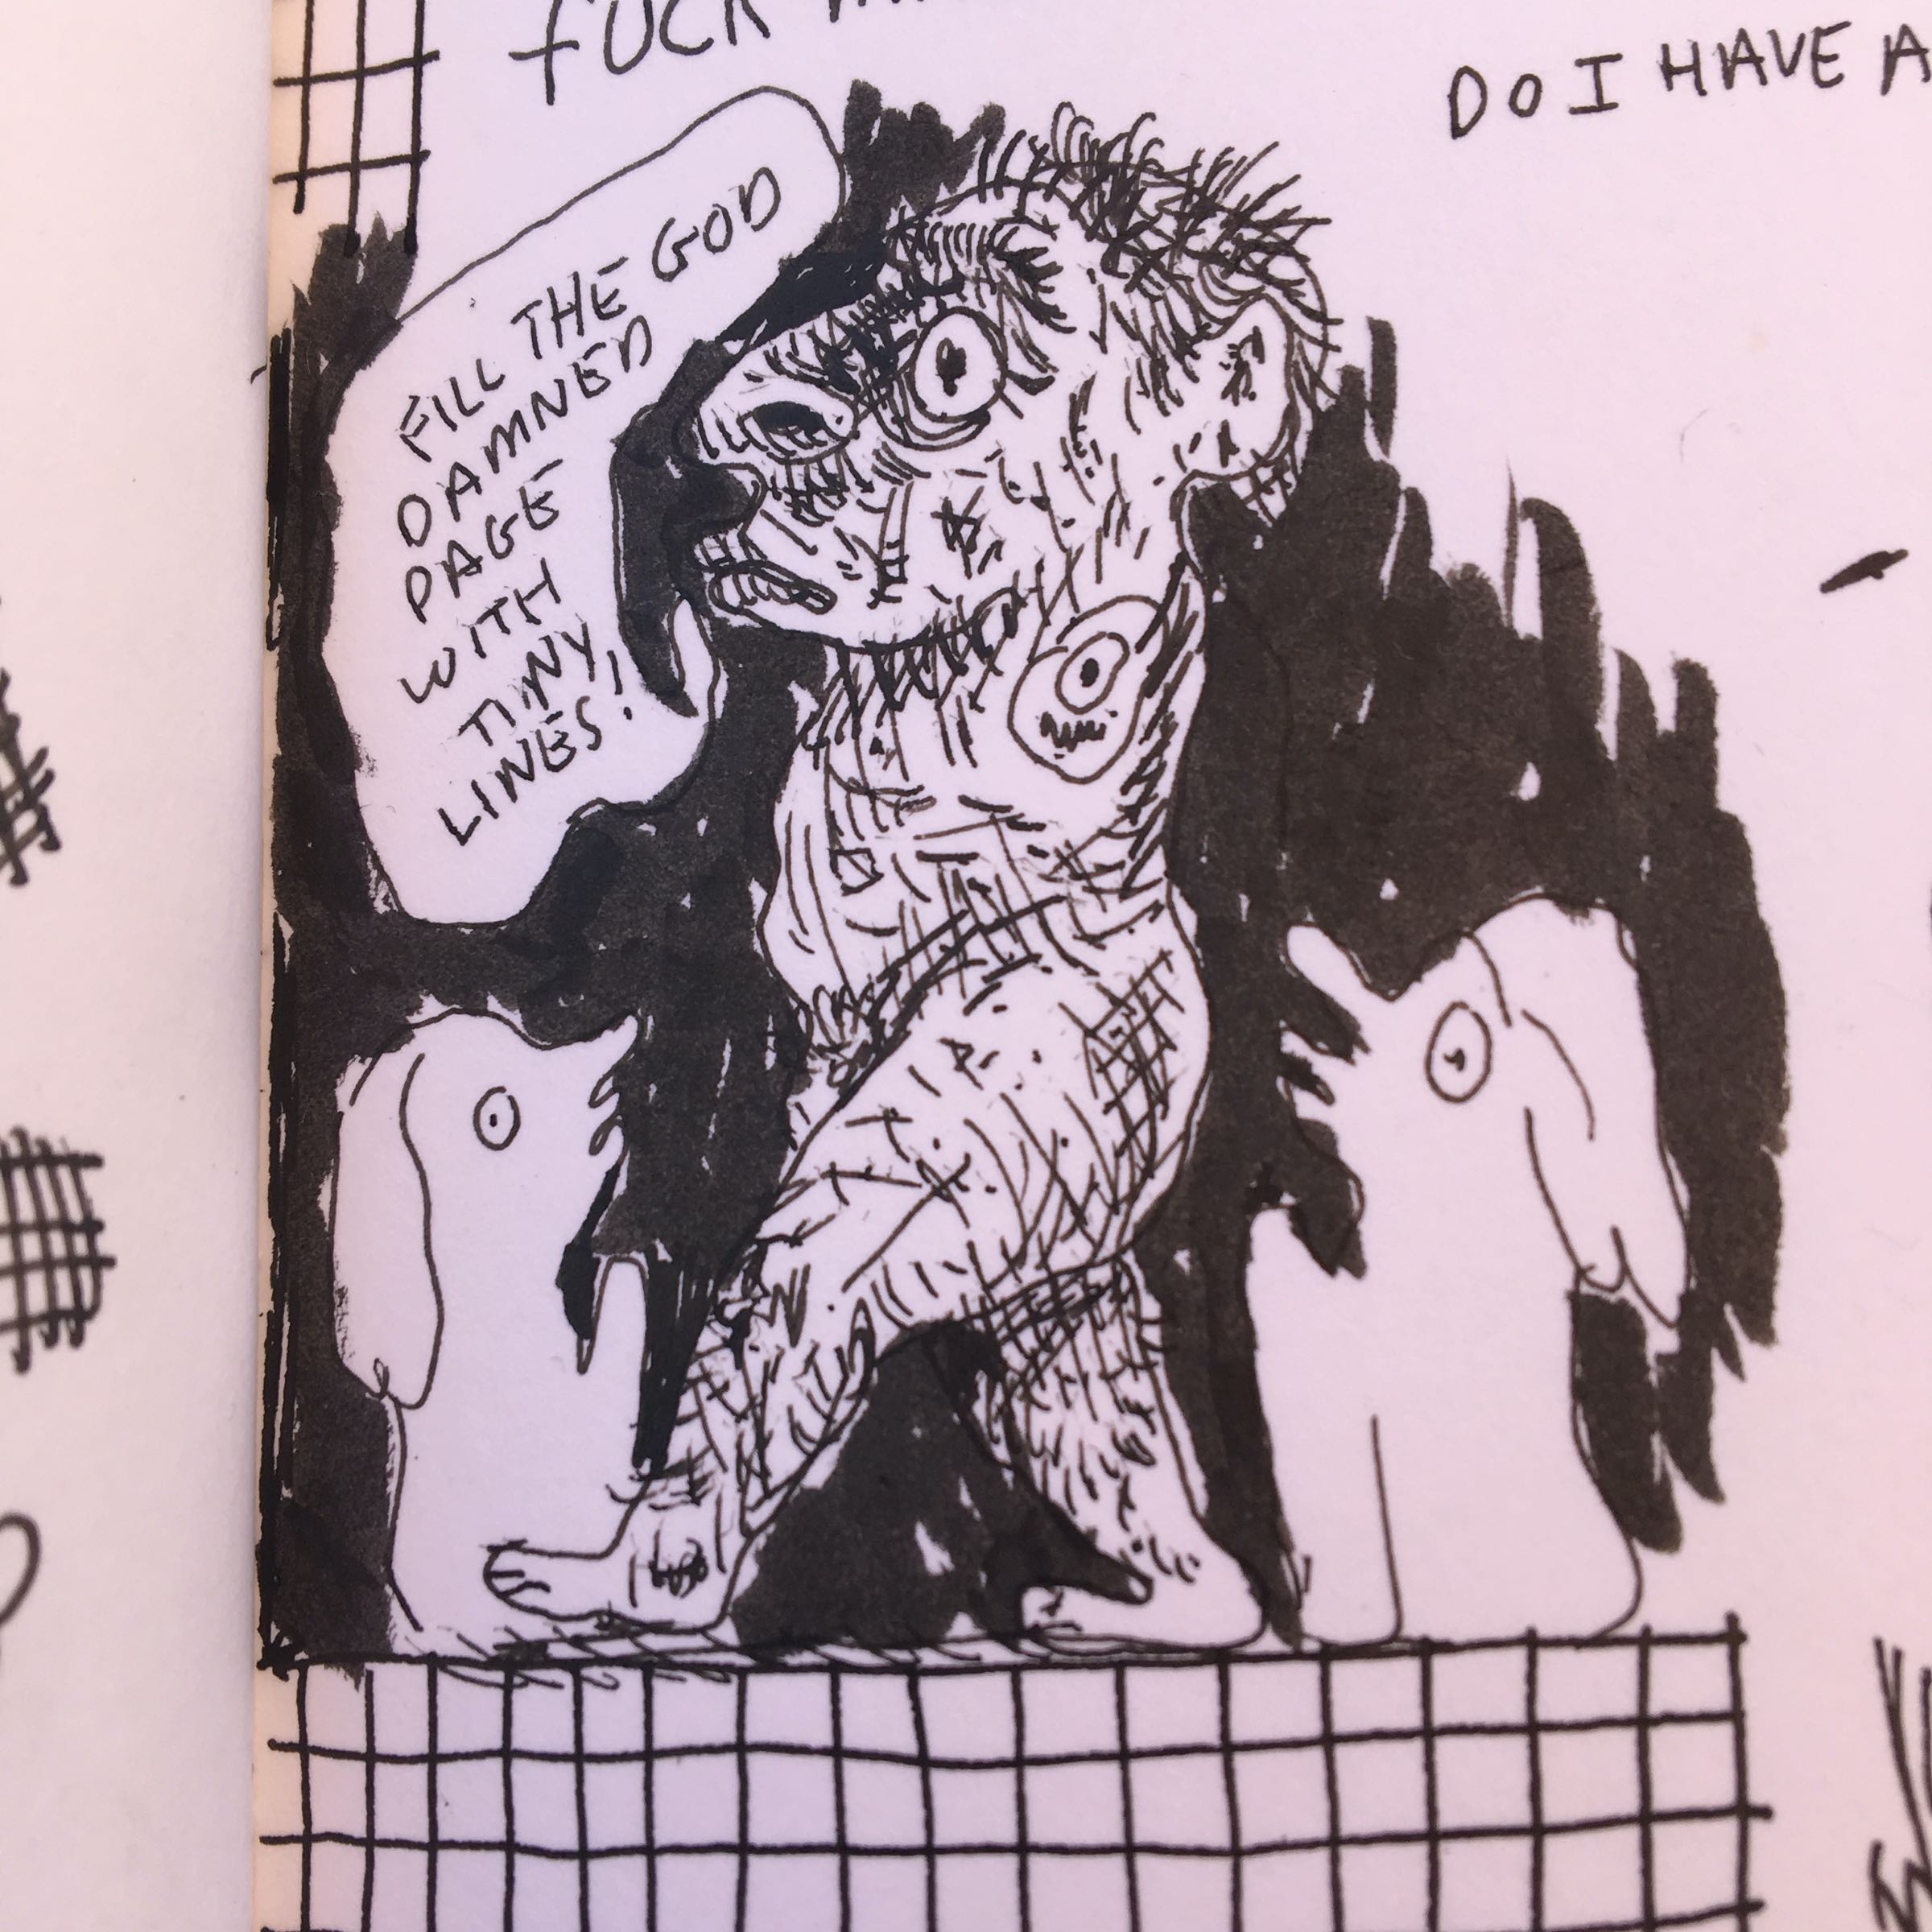 FUCK
DO I HAVE A
FILL THE GOD
DAMNED
PAGE
WITH
TINY
LINES!